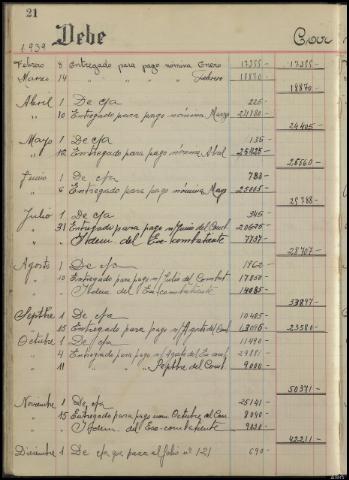 21
1939
Debe
Febrero 8 Entregado para pago nómina Enero 17255- 17255-
Marzo 14 " " " " Febrero 18870-
18870-
Abril 1 De c/a 225-
" 10 Entregado para pago nómina Marzo
24405-
Mayo 1 De c/a 135-
" 12 Entregado para pago nómina Abril 25425-
25560-
Junio 1 De c/a 783-
" 6 Entregado para pago nómina Mayo
Julio 1 De c/a 345-
" 31 Entregado para pago n/Junio del Comb 20625-
" " Idem. del Ex-combatiente 7737-
28707-
Agosto 1 De c/a 1962-
" 10 Entregado para pago n/ Julio del Combat 17850-
" " Idem del Ex-combatiente 14085-
33897-
Septbre 1 De c/a 10485-
" 15 Entregado para pago n/Agosto del Com 13095- 23580-
Octubre 1 De c/a 11490-
" 4 Entregado para pago n/ Agosto del Ex-comb
" 11 " " " " Septbre del Comb. 9000-
50371-
Noviembre 1 De c/a 25141-
" 15 Entregado para pago nom. Octubre del Com
" " Idem. del Exo-combatiente
42211-
Diciembre 1 De c/a que pasa al folio nº 121 690-